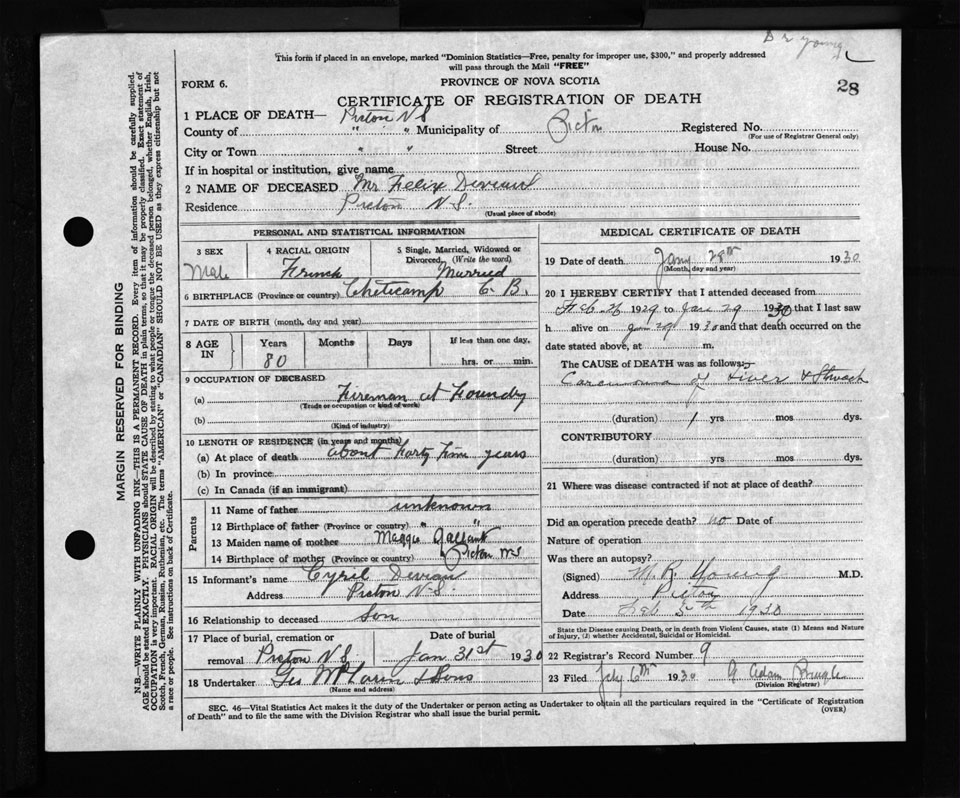 Dr Young
This form if placed in an envelope, marked "Dominion Statistics—Free, penalty for improper use, $300," and properly addressed
will pass through the Mail "FREE"
FORM 6.
PROVINCE OF NOVA SCOTIA
28
CERTIFICATE OF REGISTRATION OF DEATH
1 PLACE OF DEATH— Picton N S
County of " " Municipality of Picton Registered No.
(For use of Registrar General only)
City or Town " " Street House No.
If in hospital or institution, give name
2 NAME OF DECEASED Mr Felix
Residence Picton N.S.
(Usual place of abode)
PERSONAL AND STATISTICAL INFORMATION
3 SEX 4 RACIAL ORIGIN 5 Single, Married, Widowed or
Divorced. (Write the word)
Male French Married
6 BIRTHPLACE (Province or country) Cheticamp C. B.
7 DATE OF BIRTH (month, day and year)
8 AGE IN Years Months Days If less than one day,
80 hrs. or min.
9 OCCUPATION OF DECEASED
(a) Fireman at Foundry
(Trade or occupation or kind of work)
(b)
(Kind of industry)
10 LENGTH OF RESIDENCE (in years and months)
(a) At place of death about forty years
(b) In province
(c) In Canada (if an immigrant)
Parents
11 Name of father unknown
12 Birthplace of father (Province or country) " "
13 Maiden name of mother Maggie Gallant
14 Birthplace of mother (Province or country) Picton N S
15 Informant's name Cyril
Address Picton N.S.
16 Relationship to deceased Son
17 Place of burial, cremation or Date of burial
removal Picton N S Jan 31st 1930
18 Undertaker & Sons
(Name and address)
MEDICAL CERTIFICATE OF DEATH
19 Date of death Jany 28th 1930
(Month, day and year)
20 I HEREBY CERTIFY that I attended deceased from
Feb. 26 1929 to Jan 29 1930 that I last saw
h alive on Jan 29 1930 and that death occurred on the
date stated above, at m.
The CAUSE of DEATH was as follows:—
Carcinoma of Liver & Stomach
(duration) 1 yrs mos dys.
CONTRIBUTORY
(duration) yrs. mos. dys.
21 Where was disease contracted if not at place of death?
Did an operation precede death? no Date of
Nature of operation
Was there an autopsy?
(Signed) M. R. Young M.D.
Address Picton
Date Feb 5th 1930
State the Disease causing Death, or in death from Violent Causes, state (1) Means and Nature
of Injury, (2) whether Accidental, Suicidal or Homicidal.
22 Registrar's Record Number 9
23 Filed 6th 1930 G Adam
(Division Registrar)
SEC. 46—Vital Statistics Act makes it the duty of the Undertaker or person acting as Undertaker to obtain all the particulars required in the "Certificate of Registration
of Death" and to file the same with the Division Registrar who shall issue the burial permit.
(OVER)
MARGIN RESERVED FOR BINDING
N.B.—WRITE PLAINLY WITH UNFADING INK—THIS IS A PERMANENT RECORD. Every item of information should be carefully supplied.
AGE should be stated EXACTLY. PHYSICIANS should STATE CAUSE OF DEATH in plain terms, so that it may be properly classified. Exact statement of
OCCUPATION is very important. RACIAL ORIGIN will be described by stating to what people or tongue the deceased person belonged, whether English, Irish,
Scotch, French, German, Russian, Ruthenian, etc. The terms "AMERICAN" or "CANADIAN" SHOULD NOT BE USED as they express citizenship but not
a race or people. See instructions on back of Certificate.